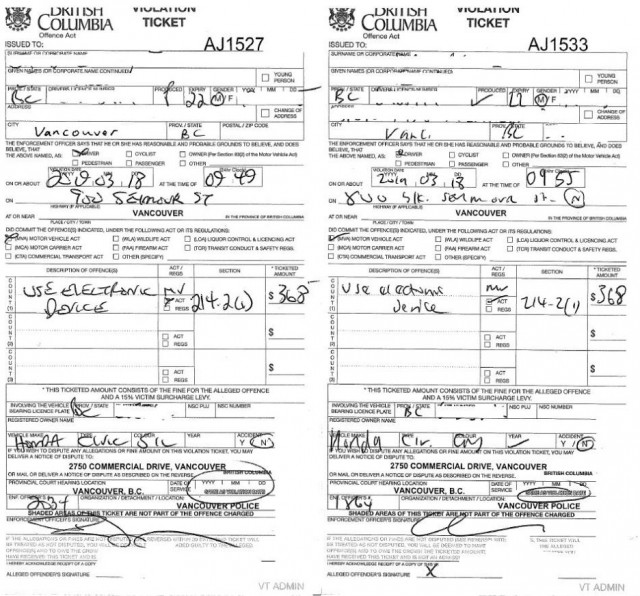 BRITISH COLUMBIA
VIOLATION TICKET
Offence Act
ISSUED TO:
AJ1527
SURNAME OR CORPORATE NAME
GIVEN NAMES (OR CORPORATE NAME CONTINUED)
YOUNG PERSON
PROV./STATE
DRIVER'S LICENCE NUMBER
PRODUCED
EXPIRY
GENDER
YYYY MM DD
BC
22
M F
ADDRESS
CHANGE OF ADDRESS
CITY
PROV./STATE
POSTAL / ZIP CODE
Vancouver
BC
THE ENFORCEMENT OFFICER SAYS THAT HE OR SHE HAS REASONABLE AND PROBABLE GROUNDS TO BELIEVE, AND DOES BELIEVE, THAT
THE ABOVE NAMED, AS:
DRIVER
CYCLIST
OWNER (Per Section 83(2) of the Motor Vehicle Act)
PEDESTRIAN
PASSENGER
OTHER
VIOLATION DATE
YYYY MM DD
ON OR ABOUT
2019.03.18
AT THE TIME OF
09:49
900 SEYMOUR ST
ON
HIGHWAY (IF APPLICABLE)
AT OR NEAR
VANCOUVER
IN THE PROVINCE OF BRITISH COLUMBIA
PLACE / CITY / TOWN
DID COMMIT THE OFFENCE(S) INDICATED, UNDER THE FOLLOWING ACT OR ITS REGULATIONS:
(MVA) MOTOR VEHICLE ACT
(WLA) WILDLIFE ACT
(LCA) LIQUOR CONTROL & LICENCING ACT
(MCA) MOTOR CARRIER ACT
(FAA) FIREARM ACT
(TCR) TRANSIT CONDUCT & SAFETY REGS.
(CTA) COMMERCIAL TRANSPORT ACT
OTHER (SPECIFY)
DESCRIPTION OF OFFENCE(S)
ACT / REGS
SECTION
TICKETED AMOUNT
COUNT (1)
USE ELECTRONIC DEVICE
MV
ACT
REGS
214.2(1)
$368
COUNT (2)
ACT
REGS
$
COUNT (3)
ACT
REGS
$
*THIS TICKETED AMOUNT CONSISTS OF THE FINE FOR THE ALLEGED OFFENCE
AND A 15% VICTIM SURCHARGE LEVY.
INVOLVING THE VEHICLE BEARING LICENCE PLATE
PROV. / STATE
NSC PLU
NSC NUMBER
BC
REGISTERED OWNER NAME
VEHICLE MAKE
TYPE
COLOUR
YEAR
ACCIDENT
HONDA Civic
Y N
IF YOU WISH TO DISPUTE ANY ALLEGATIONS OR FINE AMOUNT ON THIS VIOLATION TICKET, YOU MAY DELIVER A NOTICE OF DISPUTE TO:
2750 COMMERCIAL DRIVE, VANCOUVER
BRITISH COLUMBIA
OR MAIL OR DELIVER A NOTICE OF DISPUTE AS DESCRIBED ON THE REVERSE.
PROVINCIAL COURT HEARING LOCATION
DATE OF SERVICE
YYYY MM DD
VANCOUVER, B.C.
SAME AS VIOLATION DATE
ENF. OFFICER'S #
ORGANIZATION / DETACHMENT / LOCATION
VANCOUVER POLICE
SHADED AREAS OF THIS TICKET ARE NOT PART OF THE OFFENCE CHARGED
ENFORCEMENT OFFICER'S SIGNATURE
ALLEGED OFFENDER'S SIGNATURE
VT ADMIN
BRITISH COLUMBIA
VIOLATION TICKET
Offence Act
ISSUED TO:
AJ1533
SURNAME OR CORPORATE NAME
GIVEN NAMES (OR CORPORATE NAME CONTINUED)
YOUNG PERSON
PROV./STATE
DRIVER'S LICENCE NUMBER
PRODUCED
EXPIRY
GENDER
YYYY MM DD
BC
22
M F
ADDRESS
CHANGE OF ADDRESS
CITY
PROV./STATE
BC
THE ENFORCEMENT OFFICER SAYS THAT HE OR SHE HAS REASONABLE AND PROBABLE GROUNDS TO BELIEVE, AND DOES BELIEVE, THAT
THE ABOVE NAMED, AS:
DRIVER
CYCLIST
OWNER (Per Section 83(2) of the Motor Vehicle Act)
PEDESTRIAN
PASSENGER
OTHER
VIOLATION DATE
YYYY MM DD
ON OR ABOUT
2019.03.18
AT THE TIME OF
0955
800 blk. Seymour st. N
ON
HIGHWAY (IF APPLICABLE)
AT OR NEAR
VANCOUVER
IN THE PROVINCE OF BRITISH COLUMBIA
PLACE / CITY / TOWN
DID COMMIT THE OFFENCE(S) INDICATED, UNDER THE FOLLOWING ACT OR ITS REGULATIONS:
(MVA) MOTOR VEHICLE ACT
(WLA) WILDLIFE ACT
(LCA) LIQUOR CONTROL & LICENCING ACT
(MCA) MOTOR CARRIER ACT
(FAA) FIREARM ACT
(TCR) TRANSIT CONDUCT & SAFETY REGS.
(CTA) COMMERCIAL TRANSPORT ACT
OTHER (SPECIFY)
DESCRIPTION OF OFFENCE(S)
ACT / REGS
SECTION
TICKETED AMOUNT
COUNT (1)
Use electronic device
MV
ACT
REGS
214-2(1)
$368
COUNT (2)
ACT
REGS
$
COUNT (3)
ACT
REGS
$
*THIS TICKETED AMOUNT CONSISTS OF THE FINE FOR THE ALLEGED OFFENCE
AND A 15% VICTIM SURCHARGE LEVY.
INVOLVING THE VEHICLE BEARING LICENCE PLATE
PROV. / STATE
NSC PLU
NSC NUMBER
BC
REGISTERED OWNER NAME
VEHICLE MAKE
TYPE
COLOUR
YEAR
ACCIDENT
Honda Civ.
Y N
IF YOU WISH TO DISPUTE ANY ALLEGATIONS OR FINE AMOUNT ON THIS VIOLATION TICKET, YOU MAY DELIVER A NOTICE OF DISPUTE TO:
2750 COMMERCIAL DRIVE, VANCOUVER
BRITISH COLUMBIA
OR MAIL OR DELIVER A NOTICE OF DISPUTE AS DESCRIBED ON THE REVERSE.
PROVINCIAL COURT HEARING LOCATION
DATE OF SERVICE
YYYY MM DD
VANCOUVER, B.C.
SAME AS VIOLATION DATE
ORGANIZATION / DETACHMENT / LOCATION
VANCOUVER POLICE
SHADED AREAS OF THIS TICKET ARE NOT PART OF THE OFFENCE CHARGED
ENFORCEMENT OFFICER'S SIGNATURE
ALLEGED OFFENDER'S SIGNATURE
X
VT ADMIN